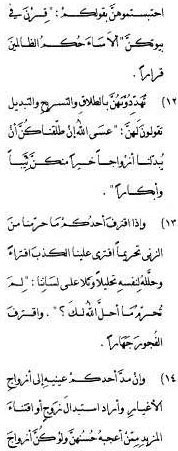 احتبستموهنّ بقولكم: "قرن في
بيوتكنّ" ألا ساء حكم الظالمين
قرارا.
(١٢) تهدّدونهنّ بالطلاق والتسريح والتبديل
تقولون لهنّ: "عسى الله إن طلّقناكنّ أن
يبدلنا أزواجاً خيراً منكنّ ثيّباً
وأبكاراً".
(١٣) وإذا اقترف أحدكم ما حرّمنا من
الزنى تحريماً افترى علينا الكذب افتراءً
وحلّله لنفسه تحليلاً وكلا على لساننا: "لِمَ
تحرّم ما أحلّ الله لك؟". واقترف
الفجور جهاراً.
(١٤) وإن مدّ أحدكم عينيه إلى أزواج
الأغيار وأراد استبدال زوج أو اقتناء
المزيد ممّن أعجبه حسنهنّ ولو كنّ أزواج